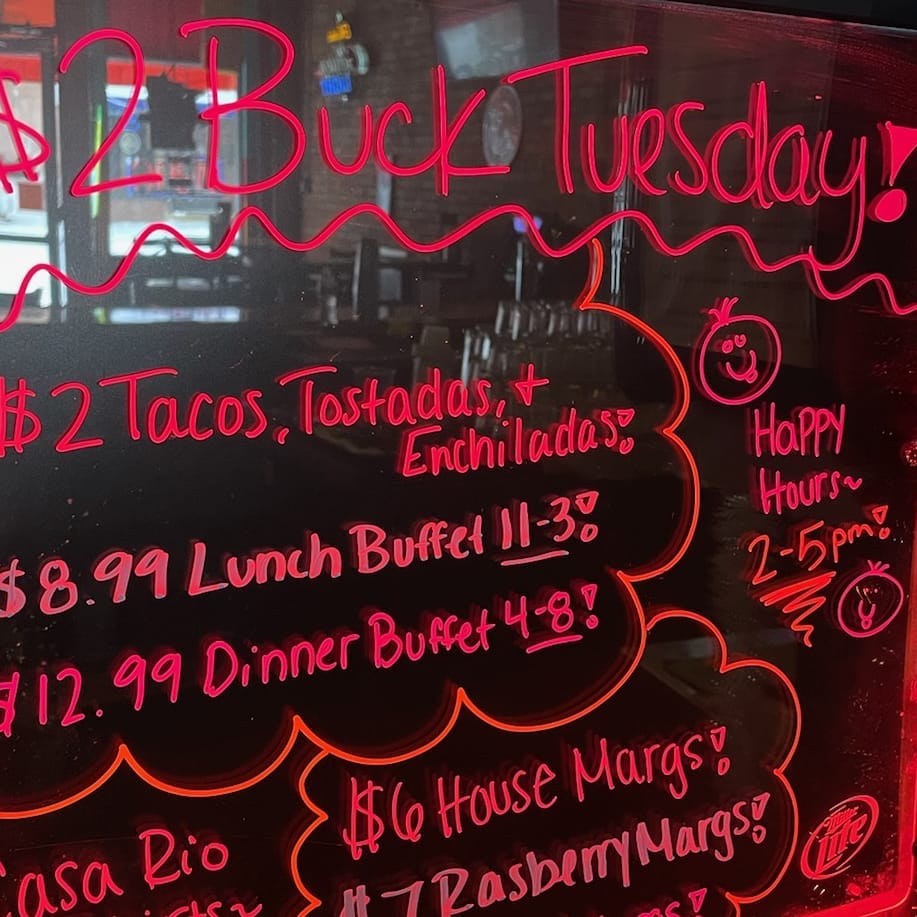 $2 Buck Tuesday!
$2 Tacos, Tostadas, +
Enchiladas!
$8.99 Lunch Buffet 11-3!
$12.99 Dinner Buffet 4-8!
Happy
Hours~
2-5pm!
$6 House Margs!
$7 Rasberry Margs!
Casa Rio
Miller
Lite